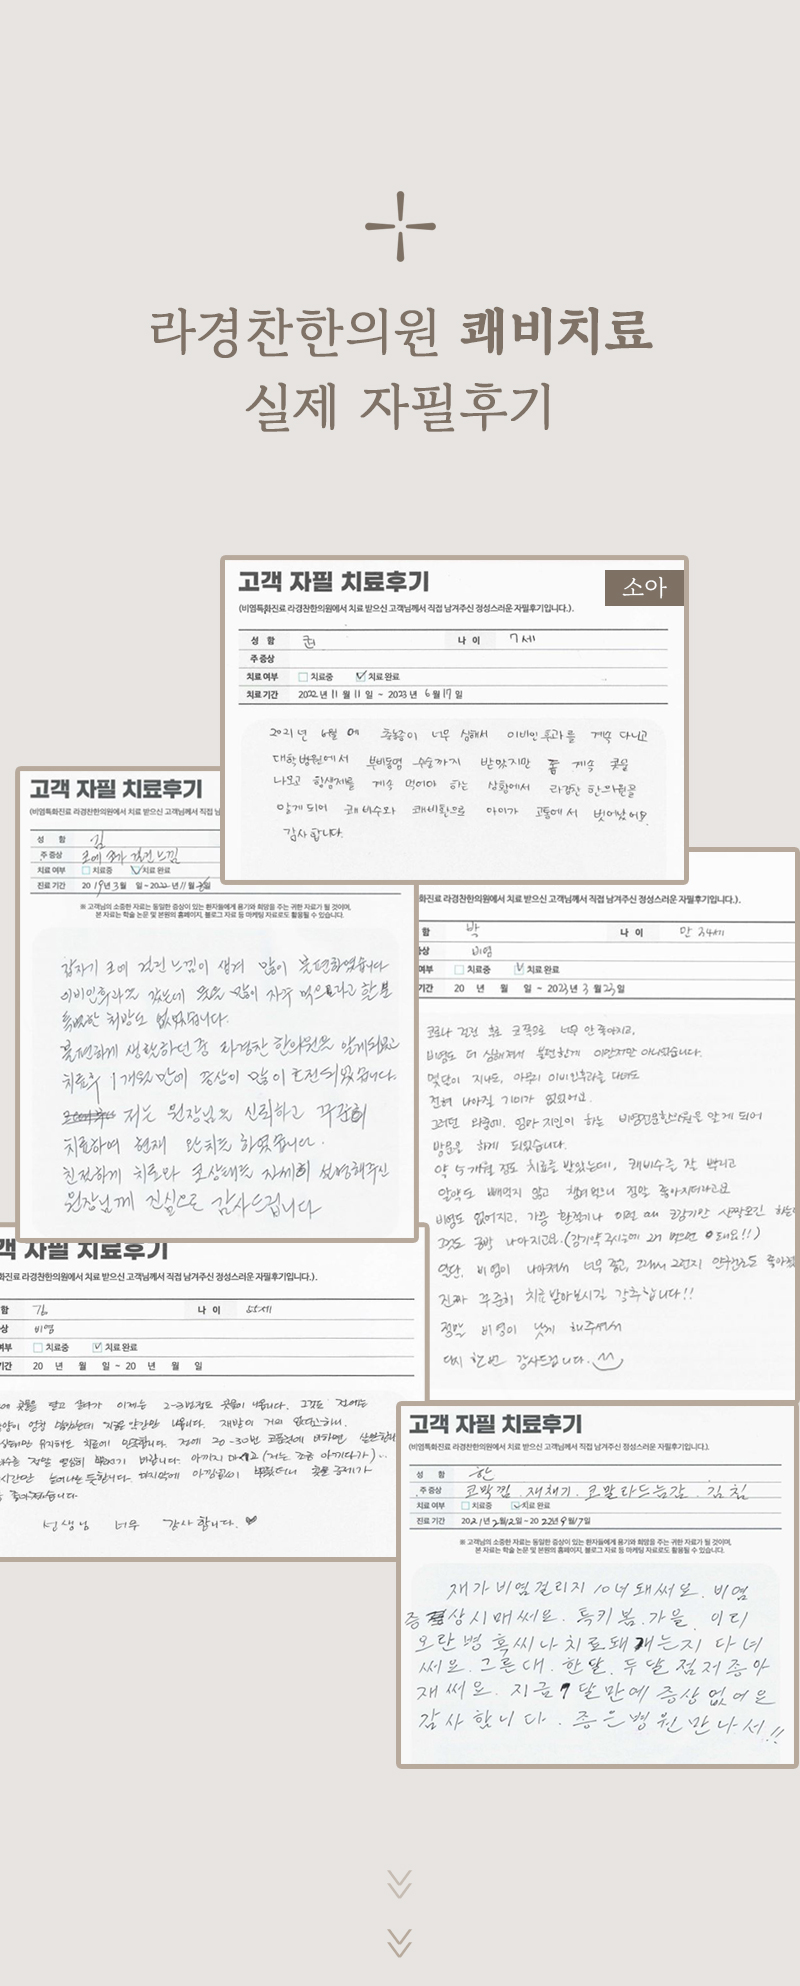 라경찬한의원 쾌비치료
실제 자필후기
고객 자필 치료후기
소아
(비염특화진료 라경찬한의원에서 치료 받으신 고객님께서 직접 남겨주신 정성스러운 자필후기입니다.).
성 함 권 나 이 7세
주증상
치료여부 치료중 치료 완료
치료기간 2022년 11월 11일 ~ 2023년 6월 17일
2021년 6월에 축농증이 너무 심해서 이비인후과를 계속 다니고
대학병원에서 부비동염 수술까지 받았지만 계속 콧물
나오고 항생제를 계속 먹어야 하는 상황에서 라경찬 한의원을
알게되어 쾌비수와 쾌비환으로 아이가 고통에서 벗어났어요.
감사합니다.
고객 자필 치료후기
(비염특화진료 라경찬한의원에서 치료 받으신 고객님께서 직접 남
성 함 김
주증상 코에 걸린 느낌
치료여부 치료중 치료 완료
진료 기간 2019년 3월 일~2022년 11월
※ 고객님의 소중한 자료는 동일한 증상이 있는 환자들에게 용기와 희망을 주는 귀한 자료가 될 것이며,
본 자료는 학술 논문 및 본원의 홈페이지, 블로그 자료 등 마케팅 자료로도 활용될 수 있습니다.
갑자기 코에 걸린 느낌이 생겨 많이 불편하였습니다
이비인후과를 갔는데 물을 많이 자주 먹으라고 할 뿐
특별한 처방도 없었습니다.
불편하게 생활하던 중 라경찬 한의원을 알게되었고
치료후 1개월 만에 증상이 많이 호전되었습니다.
저는 원장님을 신뢰하고 꾸준히
치료하여 현재 완치를 하였습니다.
친절하게 치료와 코상태를 자세히 설명해주신
원장님께 진심으로 감사드립니다
진료 라경찬한의원에서 치료 받으신 고객님께서 직접 남겨주신 정성스러운 자필후기입니다.).
함 박 나 이 만 34세
상 비염
여부 치료중 치료 완료
기간 20 년 월 일 ~ 2023년 3월 23일
코로나 걸린 후로 코쪽으로 너무 안좋아지고,
비염도 더 심해져서 불편한게 이만저만 아니었습니다.
몇달이 지나도, 아무리 이비인후과를 다녀도
전혀 나아질 기미가 없었어요.
그러던 와중에, 엄마 지인이 하는 비염전문한의원을 알게 되어
방문을 하게 되었습니다.
약 5개월 정도 치료를 받았는데, 쾌비수를 잘 뿌리고
알약도 빼먹지 않고 챙겨먹으니 정말 좋아지더라고요
비염도 없어지고, 가끔 환절기나 이럴 때 코감기만 살짝오긴 하는데
그것도 금방 나아지고요.
일단, 비염이 나아져서 너무 좋고,
진짜 꾸준히 치료받아보시길 강추합니다!!
정말 비염이 낫게 해주셔서
다시 한번 감사드립니다.
객 자필 치료후기
화진료 라경찬한의원에서 치료 받으신 고객님께서 직접 남겨주신 정성스러운 자필후기입니다.).
함 김 나 이 55세
상 비염
여부 치료중 치료 완료
기간 20 년 월 일 ~ 20 년 월 일
에 콧물을 달고 살다가 이제는 2-3번정도 콧물이 나옵니다. 그것도 전에는
양이 엄청 많았는데 지금 약간만 나옵니다. 재발이 거의 없다고하니.
상태만 유지해도 치료에 만족합니다. 전에 20-30번 코풀던것에 비하면
선생님 너무 감사합니다. ♥
고객 자필 치료후기
(비염특화진료 라경찬한의원에서 치료 받으신 고객님께서 직접 남겨주신 정성스러운 자필후기입니다.).
성 함 한
주증상 코막힘. 재채기. 코 김침
치료여부 치료중 치료 완료
진료 기간 2021년 2월 12일~2022년 9월 17일
※ 고객님의 소중한 자료는 동일한 증상이 있는 환자들에게 용기와 희망을 주는 귀한 자료가 될 것이며,
본 자료는 학술 논문 및 본원의 홈페이지, 블로그 자료 등 마케팅 자료로도 활용될 수 있습니다.
재가 비염걸리지 10녀 돼써요. 비염
증상시매써요. 특키 봄. 가을. 이디
오란병 혹씨나 치료돼개는지 다녀
써요. 그른대. 한달. 두달 점저 종아
재써요. 지금 7달만에 증상없어은
감사합니다. 종은병원만나서!!